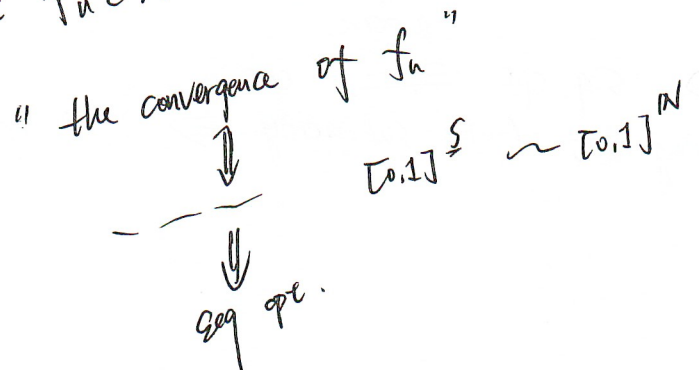 " the convergence of fn "
⇕
[0,1]^S ~ [0,1]^ℕ
⇓
seq opt.